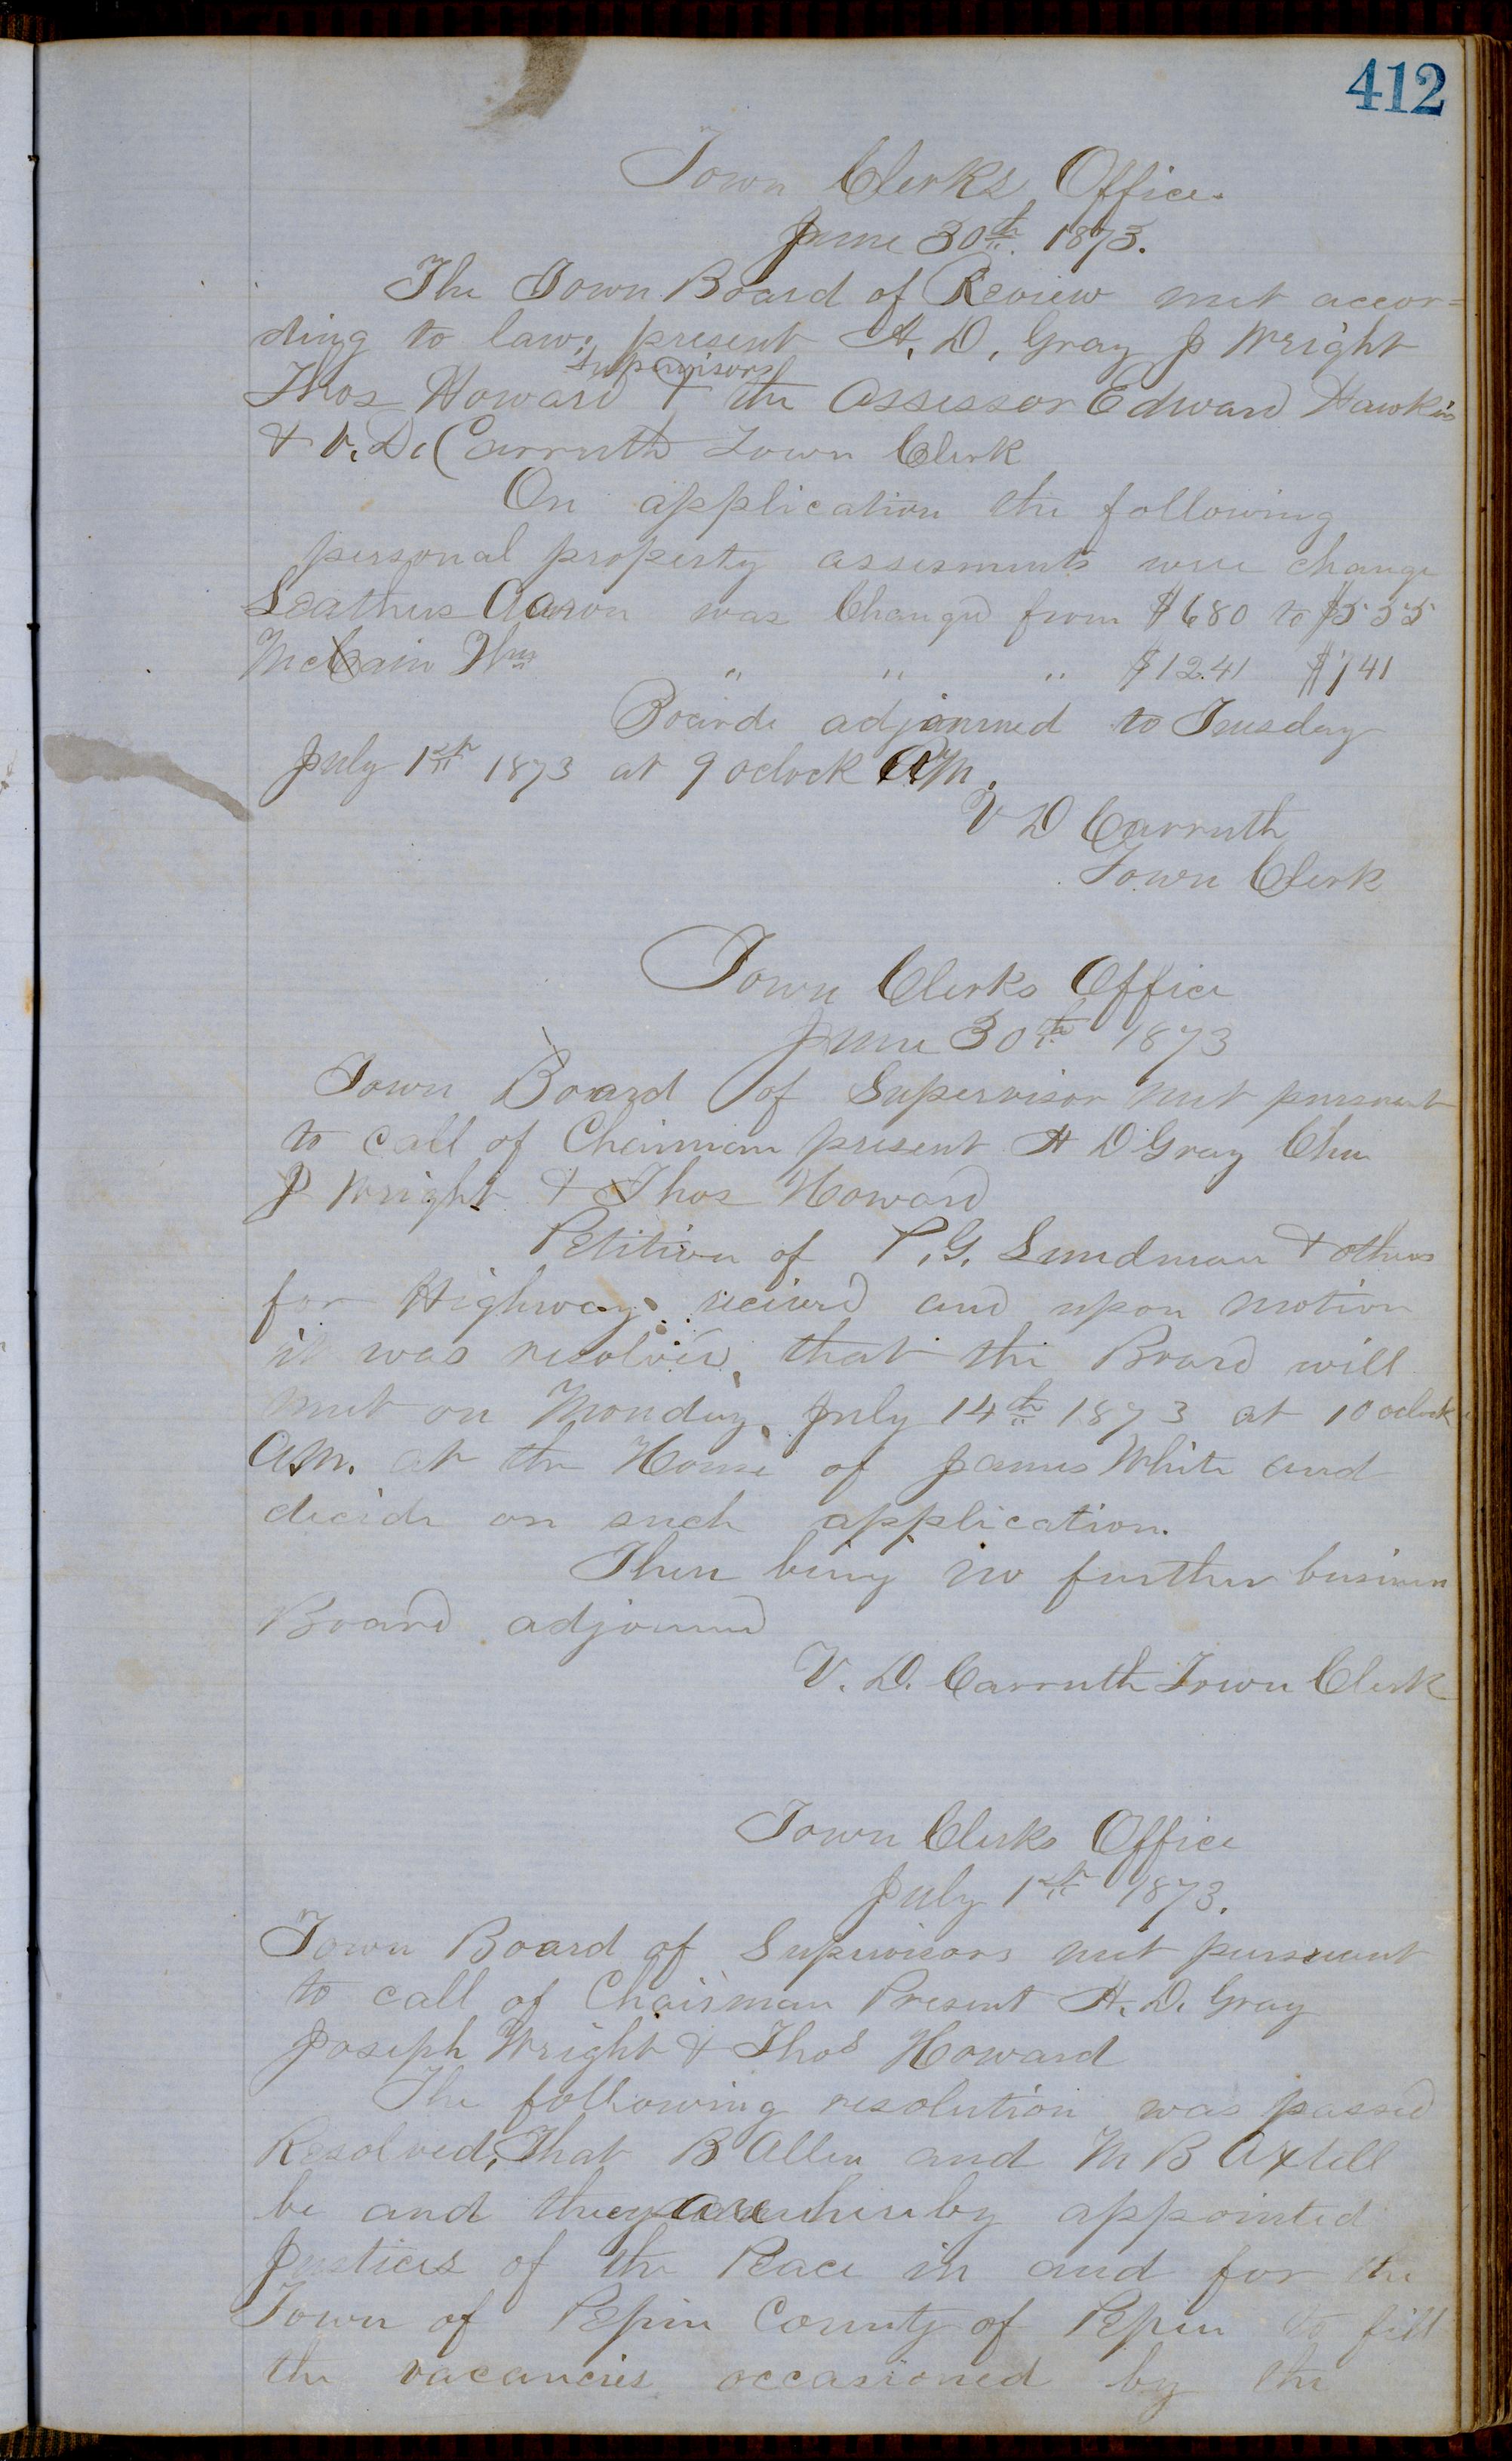 412
Town Clerks Office.
June 30th. 1873.
The Town Board of Review met accor=
ding to law; present H. D. Gray J Wright
Supervisors
Thos Howard & the Assessor Edward Hawkins
& V. D. Carruth Town Clerk
On application the following
personal property assesments were change
Aaron was Changed from $680 to $555
McCain Thos " " " $1241 $741
Boards adjourned to Tuesday
July 1st 1873 at 9 oclock AM.
V D Carruth
Town Clerk
Town Clerks Office
June 30th 1873
Town Board of Supervisor met pursuant
to call of Chairman present H D Gray Chn
J Wright & Thos Howard
Petition of P. G. Lundman & others
for Highway recieved and upon motion
it was resolved that the Board will
meet on Monday July 14th 1873 at 10 oclock
A.M. at the House of James White and
decide on such application.
There being no further business
Board adjourned
V. D. Carruth Town Clerk
Town Clerks Office
July 1st 1873.
Town Board of Supervisors met pursuant
to call of Chairman Present H. D. Gray
Joseph Wright & Thos Howard
The following resolution was passed
Resolved, That B Allen and M B Axtell
be and they are hereby appointed
Justices of the Peace in and for the
Town of Pepin County of Pepin to fill
the vacancies occasioned by the